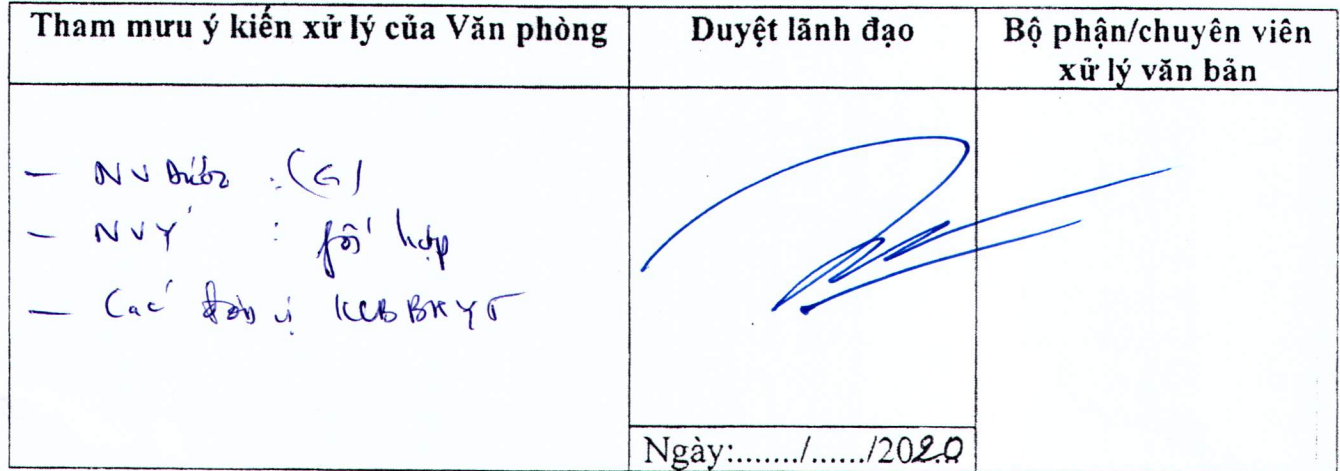 Tham mưu ý kiến xử lý của Văn phòng
Duyệt lãnh đạo
Bộ phận/chuyên viên
xử lý văn bản
— NV Dược : (G)
— NVY : phối hợp
— Các đơn vị KCB BHYT
Ngày:......./....../2020